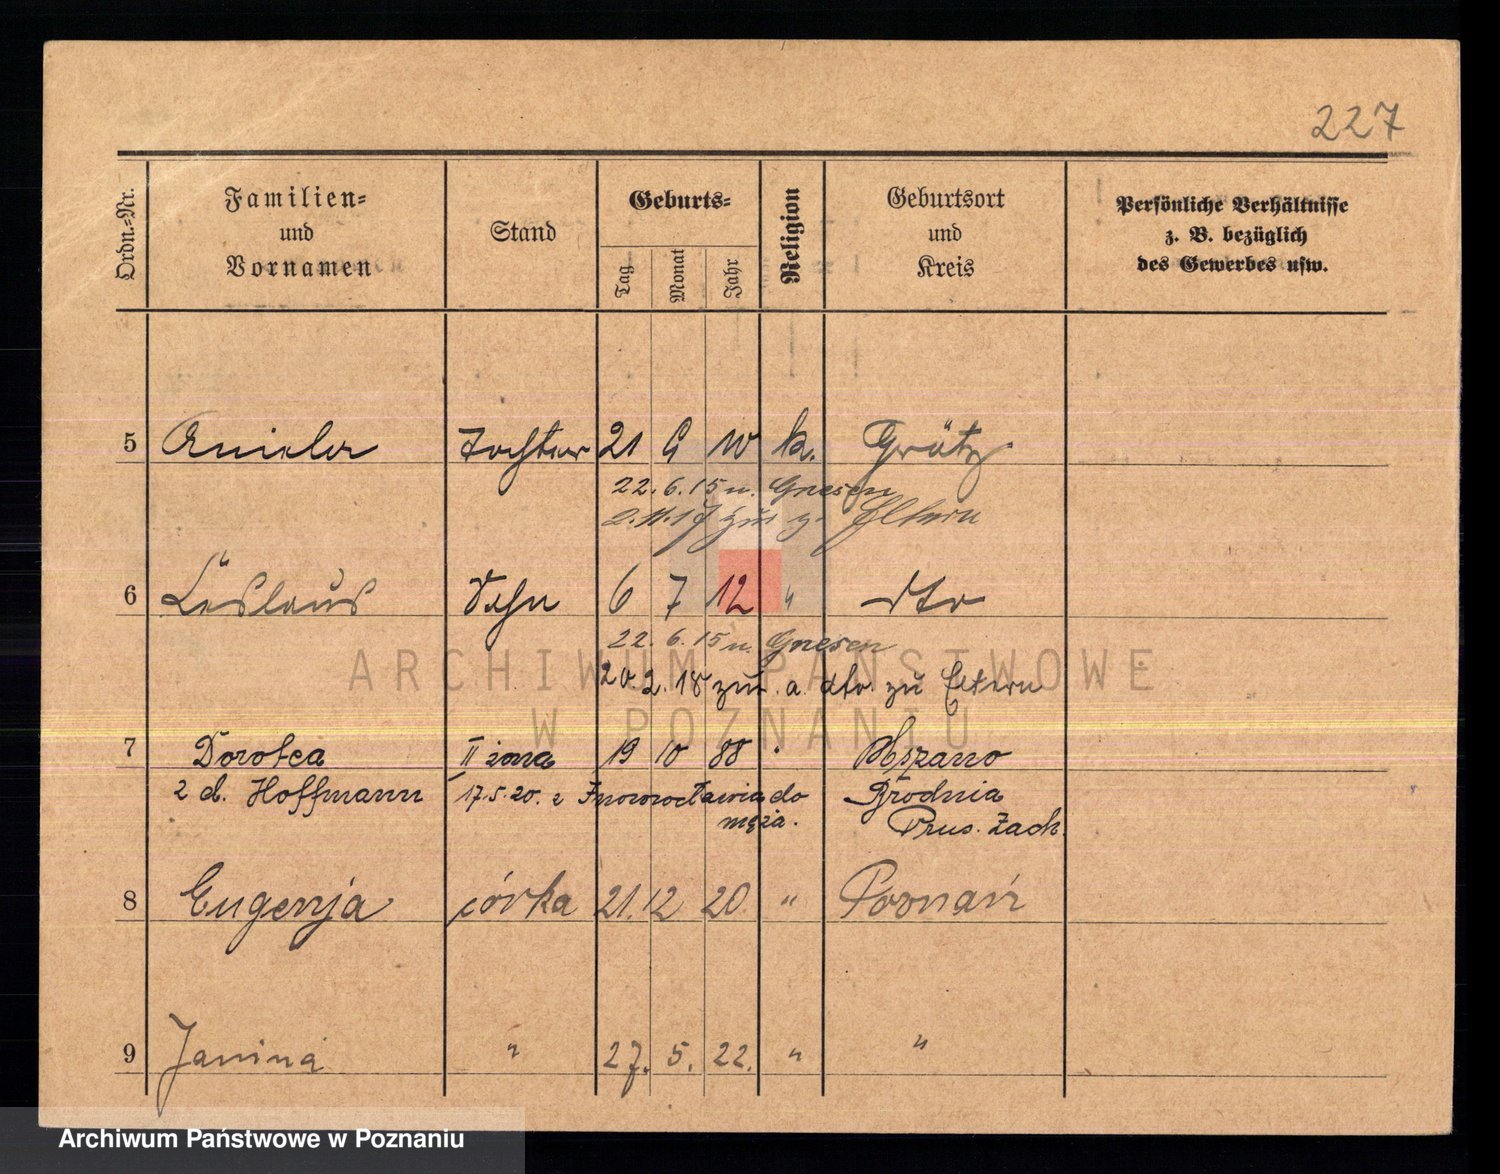 227
Ordn.-Nr.
Familien-
und
Vornamen
Stand
Geburts-
Tag
Monat
Jahr
Religion
Geburtsort
und
Kreis
Persönliche Verhältnisse
z. B. bezüglich
des Gewerbes usw.
5 Aniela Tochter 21 9 10 k. Grätz
22. 6. 15 n. Gnesen
2.11.17 zur z. Eltern
6 Läslaus Sohn 6 7 12 " dto
22. 6. 15 n. Gnesen
20.2.18 zur. a. dto. zu Eltern
ARCHIWUM PAŃSTWOWE
W POZNANIU
7 Dorotea II żona 19 10 88 " Mszano
2 d. Hoffmann 17.5.20. z Inowrocławia do Brodnia
męża. Prus. Zach.
8 Eugenja córka 21. 12 20. " Poznań
9 Janina " 27. 5. 22. " "
Archiwum Państwowe w Poznaniu